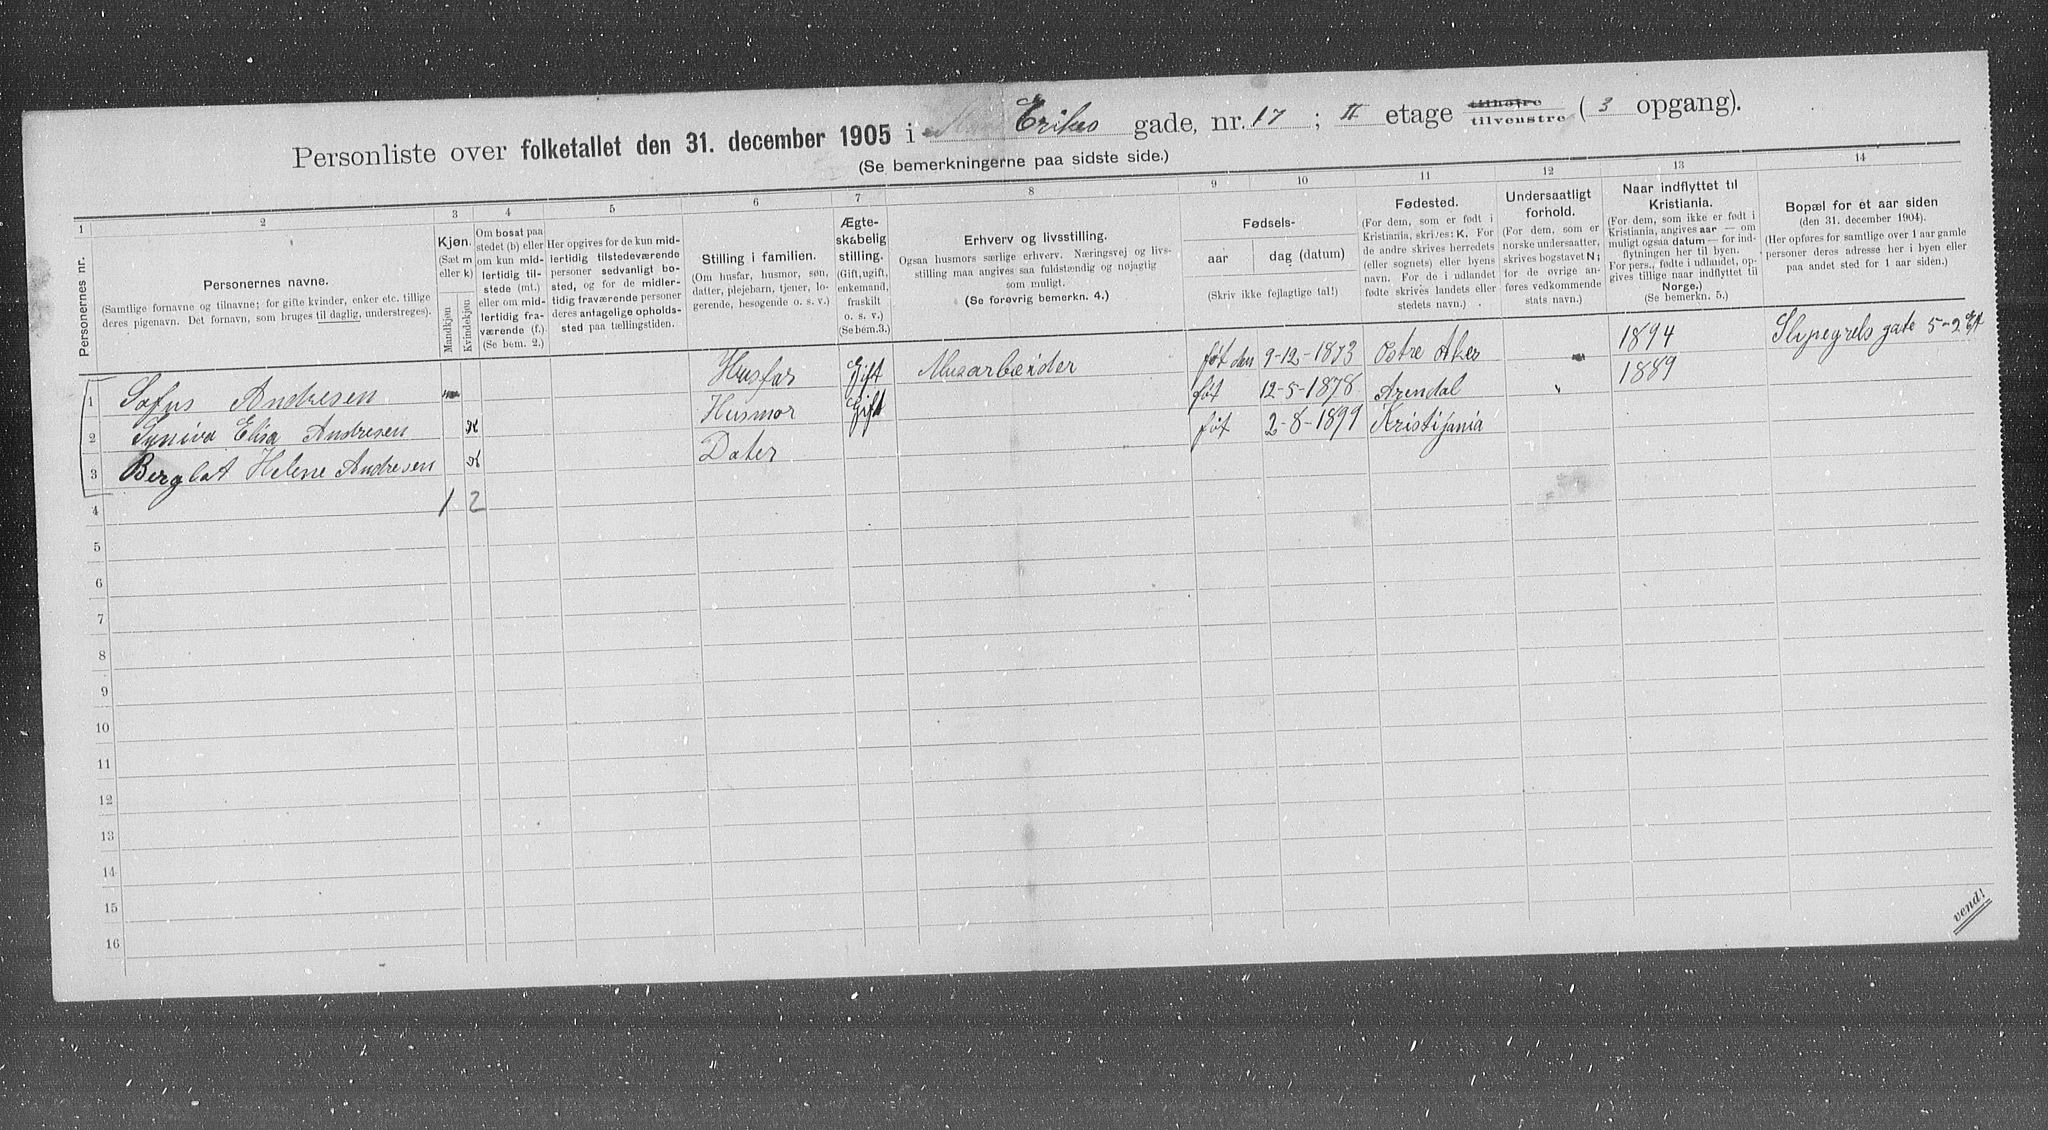 Personliste over folketallet den 31. december 1905 i Erikes gade, nr. 17 ; II etage tilhøjre tilvenstre ( 3 opgang).
(Se bemerkningerne paa sidste side.)
1 2 3 4 5 6 7 8 9 10 11 12 13 14
Personernes nr.
Personernes navne.
(Samtlige fornavne og tilnavne; for gifte kvinder, enker etc. tillige
deres pigenavn. Det fornavn, som bruges til daglig, understreges).
Kjøn.
(Sæt m
eller k)
Mandkjøn
Kvindekjøn
Om bosat paa
stedet (b) eller
om kun mid-
lertidig til-
stede (mt.)
eller om mid-
lertidig fra-
værende (f.)
(Se bem. 2.)
Her opgives for de kun mid-
lertidig tilstedeværende
personer sedvanligt bo-
sted, og for de midler-
tidig fraværende personer
deres antagelige opholds-
sted paa tællingstiden.
Stilling i familien.
(Om husfar, husmor, søn,
datter, plejebarn, tjener, lo-
gerende, besøgende o. s. v.)
Ægte-
skabelig
stilling.
(Gift, ugift,
enkemand,
fraskilt
o. s. v.)
(Se bem.3.)
Erhverv og livsstilling.
Ogsaa husmors særlige erhverv. Næringsvej og livs-
stilling maa angives saa fuldstændig og nøjagtig
som muligt.
(Se forøvrig bemerkn. 4.)
Fødsels-
aar dag (datum)
(Skriv ikke fejlagtige tal!)
Fødested.
(For dem, som er født i
Kristiania, skrives: K. For
de andre skrives herredets
(eller sognets) eller byens
navn. For de i udlandet
fødte skrives landets eller
stedets navn.)
Undersaatligt
forhold.
(For dem, som er
norske undersaatter,
skrives bogstavet N;
for de øvrige an-
føres vedkommende
stats navn.)
Naar indflyttet til
Kristiania.
(For dem, som ikke er født i
Kristiania, angives aar — om
muligt ogsaa datum — for ind-
flytningen her til byen.
For pers., fødte i udlandet, op-
gives tillige naar indflyttet til
Norge.)
(Se bemerkn. 5.)
Bopæl for et aar siden
(den 31. december 1904).
(Her opføres for samtlige over 1 aar gamle
personer deres adresse her i byen eller
paa andet sted for 1 aar siden.)
1 Sofus Andresen m Husfar Gift Murarbeider føt den 9-12-1873 Østre Aker 1894 Slupegrels gate 5-2 Et
2 Syniva Elisa Andresen K Husmor Gift føt 12-5-1878 Arendal " 1889
3 Berglat Helene Andresen K Dater føt 2-8-1899 Kristijania
4 1 2
5
6
7
8
9
10
11
12
13
14
15
16
vend!